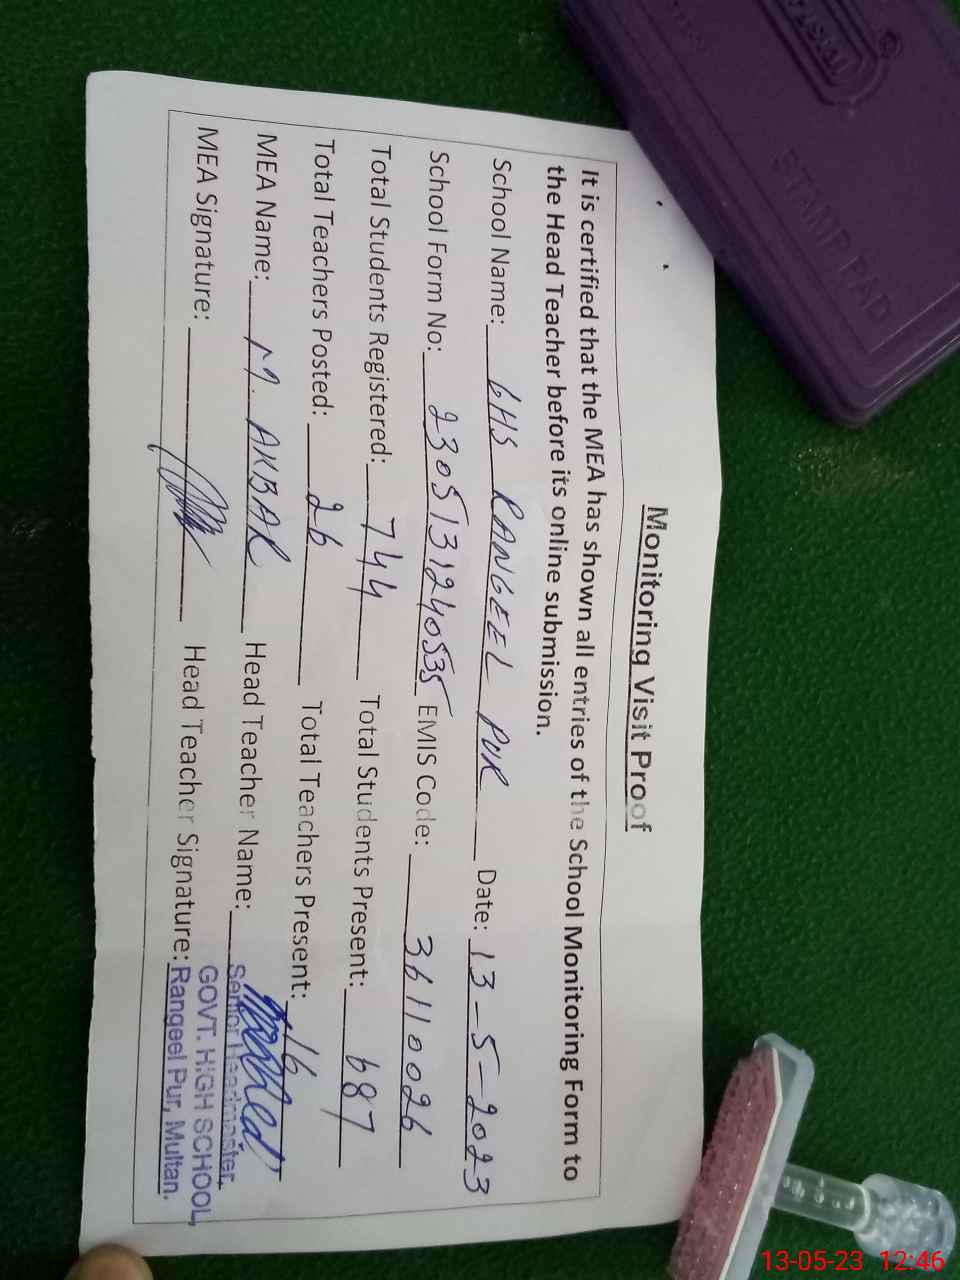 Monitoring Visit Proof
It is certified that the MEA has shown all entries of the School Monitoring Form to
the Head Teacher before its online submission.
School Name: GHS RANGEEL PUR Date: 13-5-2023
School Form No: 2305131240535 EMIS Code: 36110026
Total Students Registered: 744 Total Students Present: 687
Total Teachers Posted: 26 Total Teachers Present: 16
MEA Name: M. AKBAR Head Teacher Name:
Senior Headmaster,
GOVT. HIGH SCHOOL,
MEA Signature: Head Teacher Signature: Rangeel Pur, Multan.
STAMP PAD
13-05-23 12:46